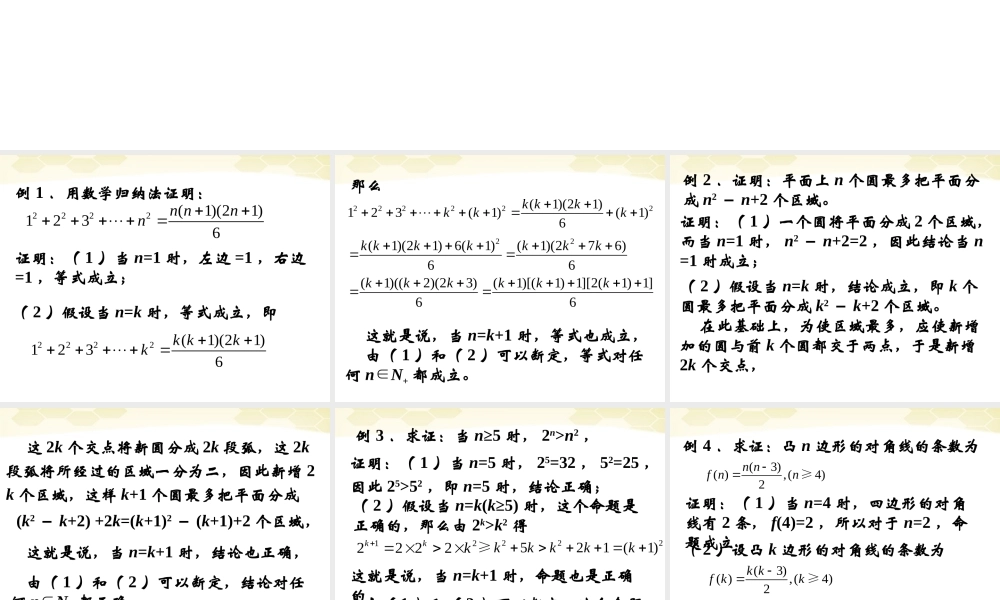 例 1 ．用数学归纳法证明：
1² 2² 3² ⋯⋯ n² = n(n 1)(2n 1) / 6
证明：（ 1 ）当 n=1 时，左边 =1 ，右边
=1 ，等式成立；
（ 2 ）假设当 n=k 时，等式成立，即
1² 2² 3² ⋯⋯ k² = k(k 1)(2k 1) / 6
那么
1² 2² 3² ⋯⋯ k² (k 1)² = k(k 1)(2k 1) / 6 (k 1)²
= k(k 1)(2k 1) 6(k 1)² / 6 = (k 1)(2k² 7k 6) / 6
= (k 1)((k 2)(2k 3) / 6 = (k 1)[(k 1) 1][2(k 1) 1] / 6
这就是说，当 n=k+1 时，等式也成立，
由（ 1 ）和（ 2 ）可以断定，等式对任
何 n∈N₊ 都成立。
例 2 ．证明：平面上 n 个圆最多把平面分
成 n² － n+2 个区域。
证明：（ 1 ）一个圆将平面分成 2 个区域，
而当 n=1 时， n² － n+2=2 ，因此结论当 n
=1 时成立；
（ 2 ）假设当 n=k 时，结论成立，即 k 个
圆最多把平面分成 k² － k+2 个区域。
在此基础上，为使区域最多，应使新增
加的圆与前 k 个圆都交于两点，于是新增
2k 个交点，
这 2k 个交点将新圆分成 2k 段弧，这 2k
段弧将所经过的区域一分为二，因此新增 2
k 个区域，这样 k+1 个圆最多把平面分成
(k² － k+2) +2k=(k+1)² － (k+1)+2 个区域，
这就是说，当 n=k+1 时，结论也正确，
由（ 1 ）和（ 2 ）可以断定，结论对任
例 3 ．求证：当 n≥5 时， 2ⁿ>n² ，
证明：（ 1 ）当 n=5 时， 2⁵=32 ， 5²=25 ，
因此 2⁵>5² ，即 n=5 时，结论正确；
（ 2 ）假设当 n=k(k≥5) 时，这个命题是
正确的，那么由 2ᵏ>k² 得
2ᵏ⁺¹ 2 2ᵏ 2 k² ≥ k² 5k k² 2k 1 (k 1)²
这就是说，当 n=k+1 时，命题也是正确
的
例 4 ．求证：凸 n 边形的对角线的条数为
f(n) = n(n 3) / 2 ,(n ≥ 4)
证明：（ 1 ）当 n=4 时，四边形的对角
线有 2 条， f(4)=2 ，所以对于 n=2 ，命
题成立
（ 2 ）设凸 k 边形的对角线的条数为
f(k) = k(k 3) / 2 ,(k ≥ 4)